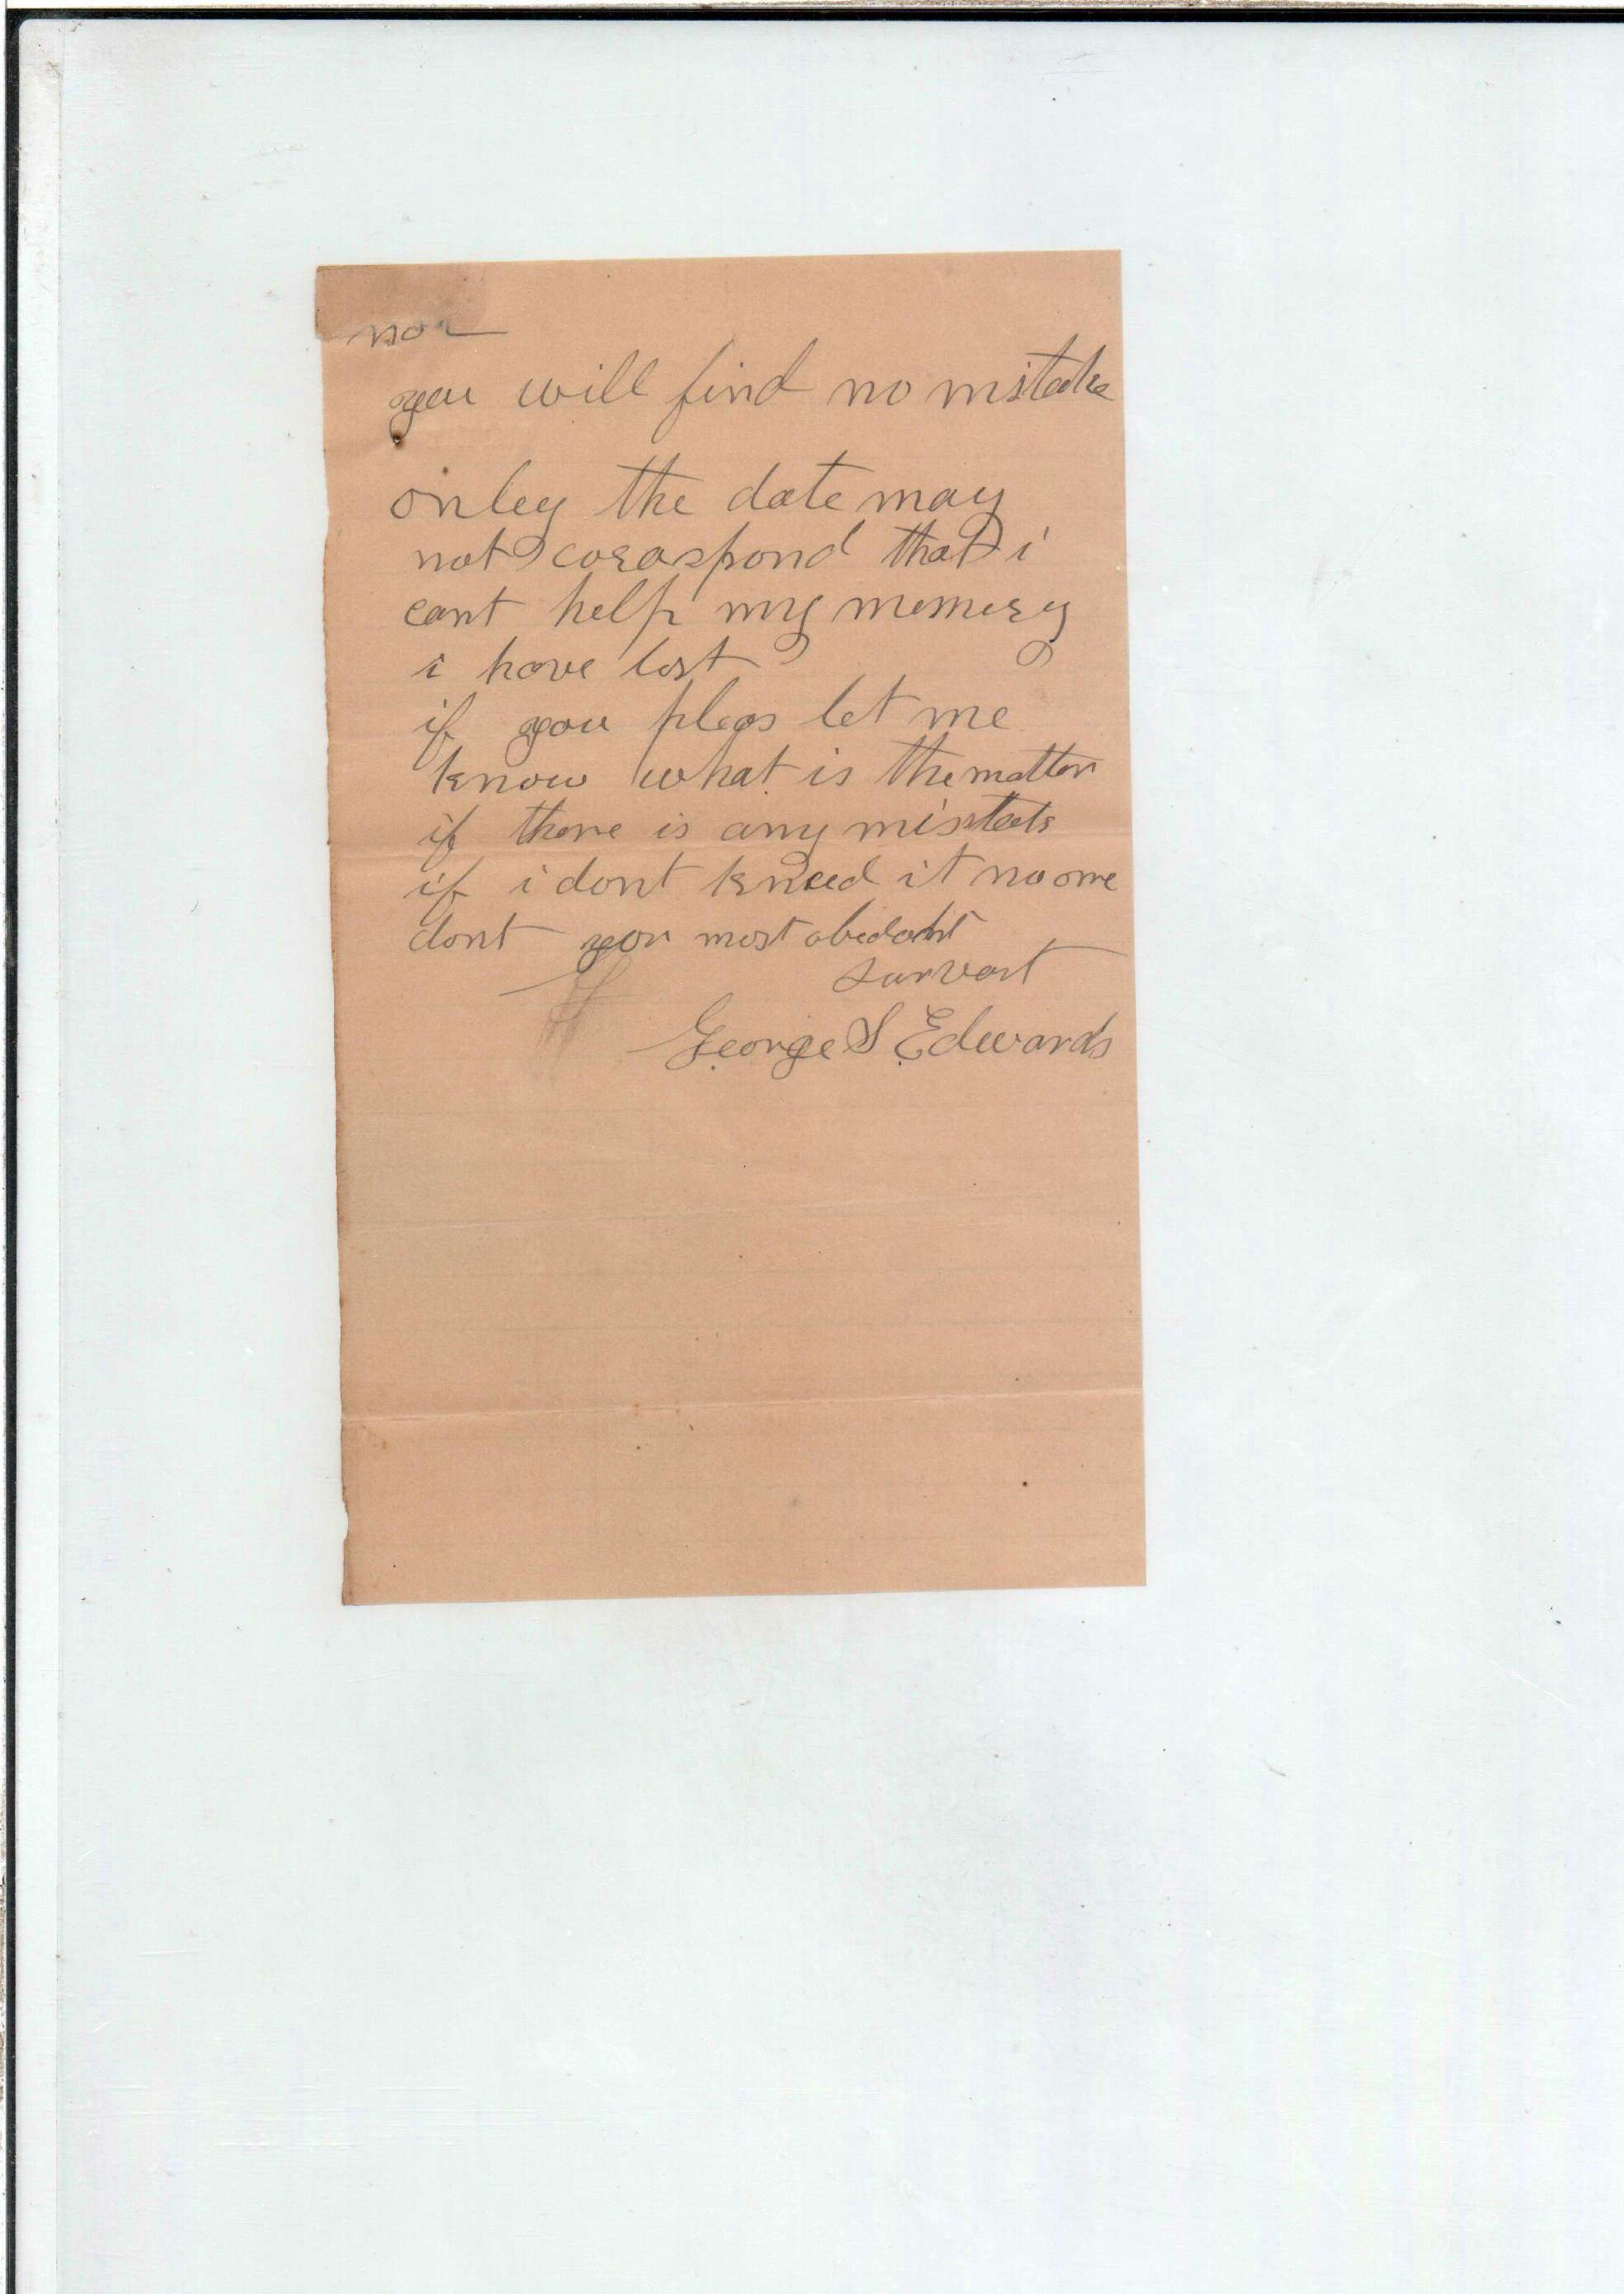 nor
you will find no mistake
onley the date may
not coraspond that i
cant help my memery
i have lost
if you pleas let me
know what is the matter
if there is any mistaks
if i dont it no one
dont your most abedant
survant
George S Edwards